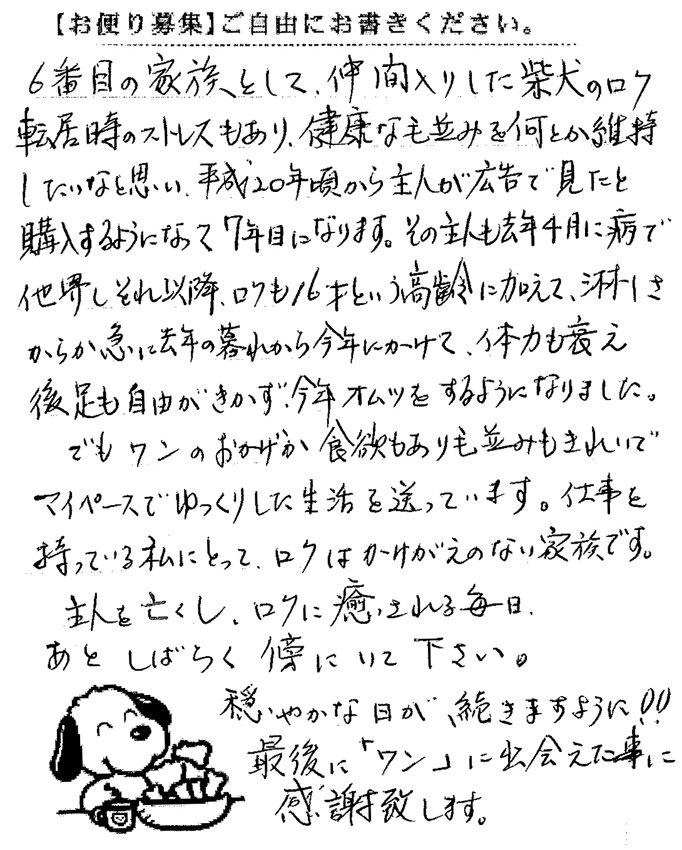 【お便り募集】ご自由にお書きください。
6番目の家族として、仲間入りした柴犬のロク
転居時のストレスもあり、健康な毛並みを何とか維持
したいなと思い、平成20年頃から主人が広告で見たと
購入するようになって7年目になります。その主人も去年4月に病で
他界しそれ以降、ロクも16才という高齢に加えて、淋しさ
からか急に去年の暮れから今年にかけて、体力も衰え
後足も自由がきかず、今年オムツをするようになりました。
でもワンのおかげか食欲もあり毛並みもきれいで
マイペースでゆっくりした生活を送っています。仕事を
持っている私にとって、ロクはかけがえのない家族です。
主人を亡くし、ロクに癒される毎日、
あとしばらく傍にいて下さい。
穏やかな日が、続きますように!!
最後に「ワン」に出会えた事に
感謝致します。